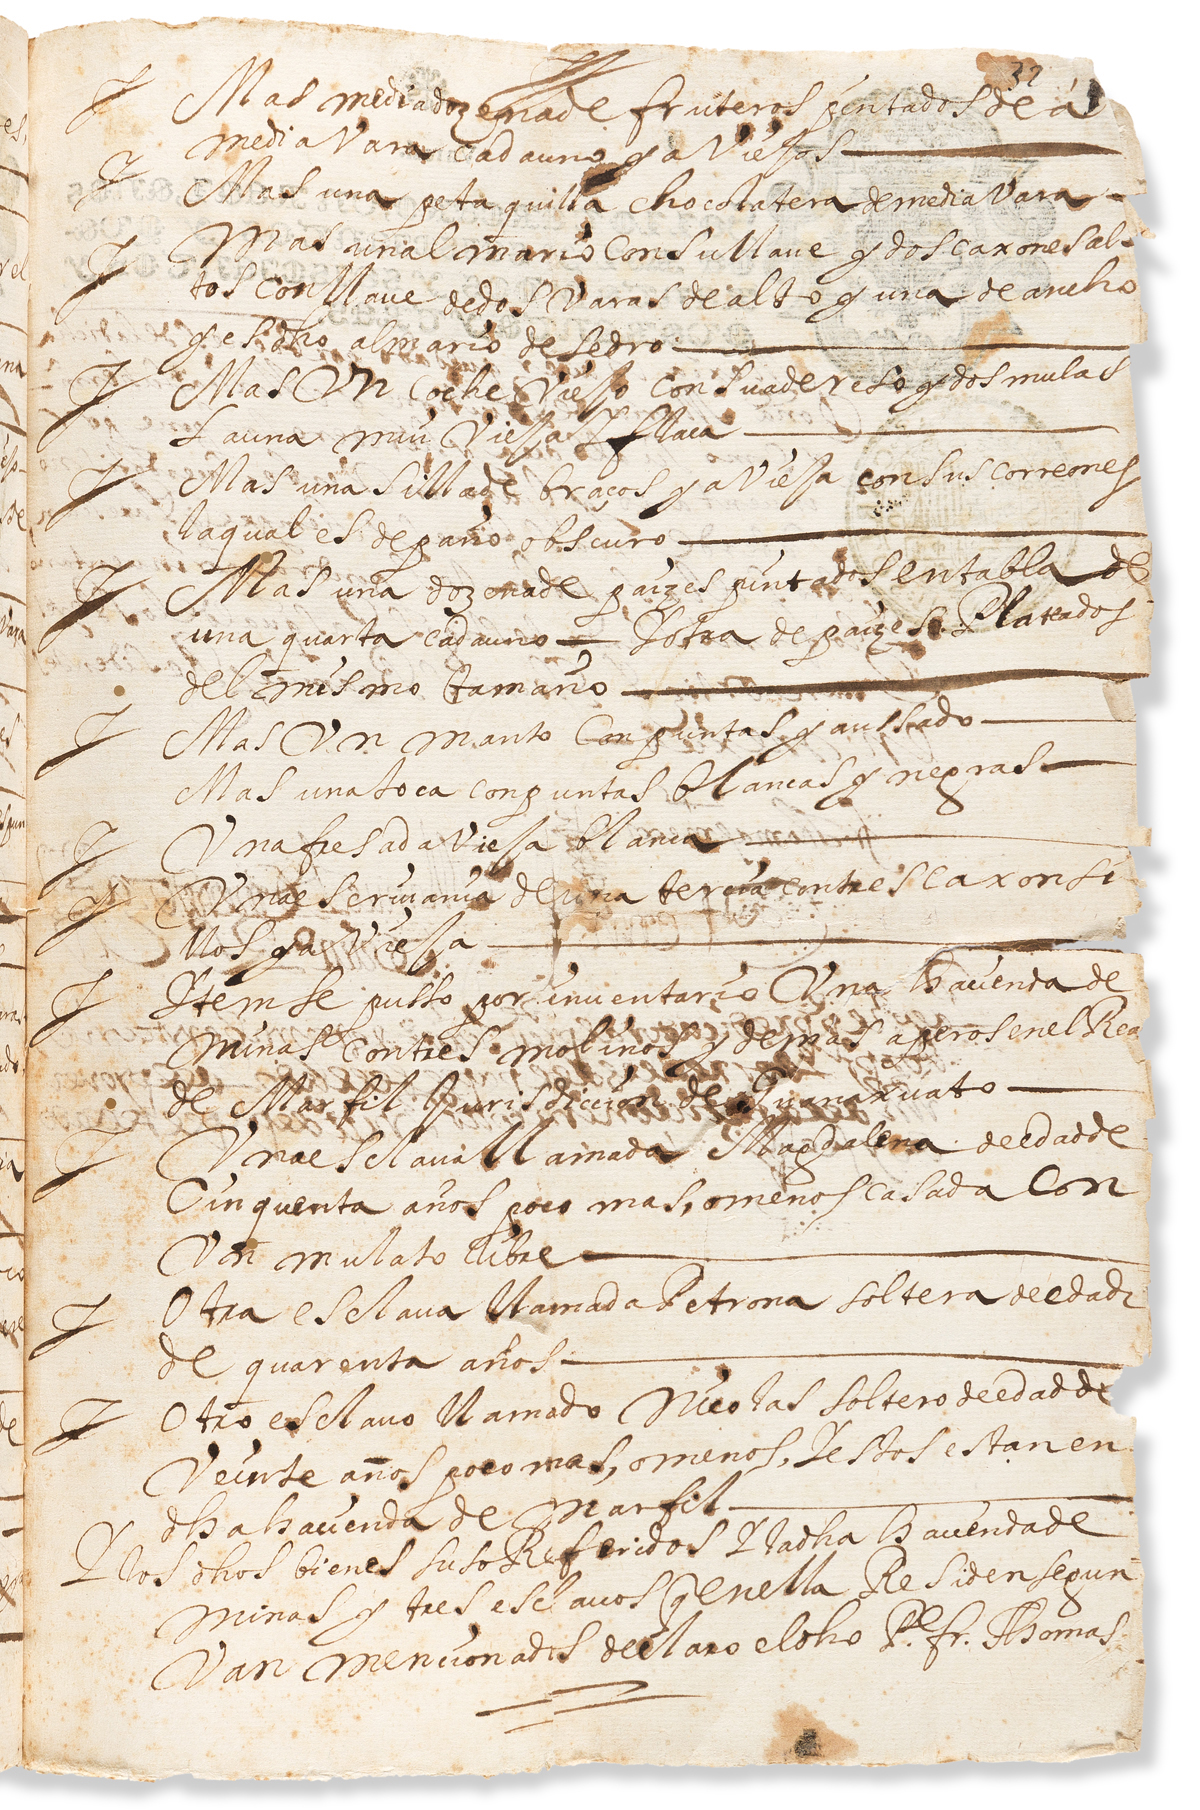 32
Mas media dozena de fruteros pintados de a
media Vara cada uno ya Viejos
Mas una petaquilla chocolatera de media Vara
Mas un almario con su llave y dos caxones al-
tos con llave de dos Varas de alto y una de ancho
y es dho almario de sedro
Mas Un coche Viejo con su adereso y dos mulas
La una mui Vieja Y flaca
Mas una silla de braços ya Vieja con sus correones
la qual es de paño obscuro
Mas una dozena de paizes pintados en tabla de
una quarta cada uno Y otra de paizes Plateados
del mismo tamaño
Mas Un manto Con puntas y aussado
Mas una toca con puntas blancas y negras
Una fresada Vieja blanca
Una escrivania de una tercia con tres caxonsi
llos ya Vieja
Ytem se pusso por inventario Una hacienda de
minas con tres molinos y demas aperos en el Rea
de Marfil Jurisdicion de Guanaxuato
Una esclava llamada Magdalena de edad de
Cinquenta años poco mas, o menos casada Con
Un mulato libre
Otra esclava llamada Petrona soltera de edad
de quarenta años
Otro esclavo llamado Nicolas soltero de edad de
Veinte años poco mas, o menos, Y estos estan en
dha hacienda de Marfil
Y los dhos bienes suso Referidos Y la dha hacienda de
minas y tres esclavos q̃ en ella Residen segun
Van mencionados declaro el dho P.e fr. Thomas